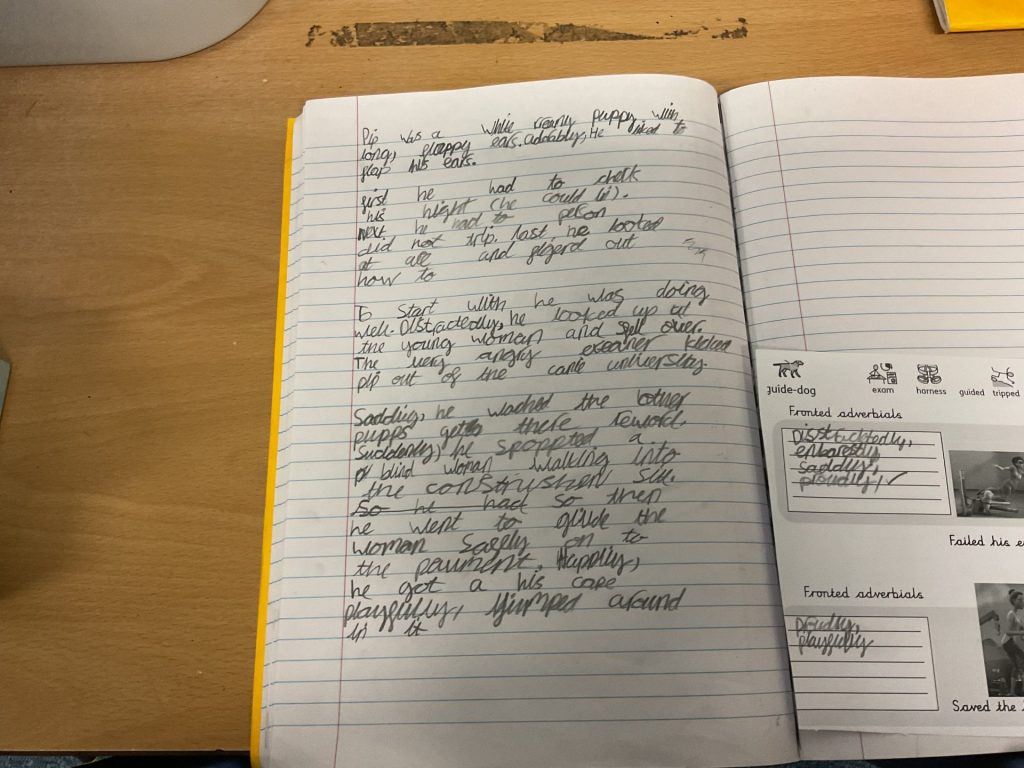 Pip was a while creamy puppy with
long, flappy ears. addably, He liked to
flap his ears.
first he had to chek
his hight (he could lie).
Next, he had to person
did not trip. last he looted
at all and figerd out
how to
To Start with he was doing
well. Distractedly, he looked up at
the young woman and fell over.
The very angry exeaner kicked
pip out of the canie university.
Saddly, he wached the other
pupps get there reword.
Suddenly, he spoppted a
blind woman walking into
the construshen site.
So he had so then
he went to guide the
woman safely on to
the paument. Happily,
he got a his cape
playfully, jumped around
in it
guide-dog
exam
harness
guided
tripped
Fronted adverbials
Distracktedly,
enbaressly,
saddly,
proudly, ✓
Failed his e
Fronted adverbials
proudly,
playfully
Saved the